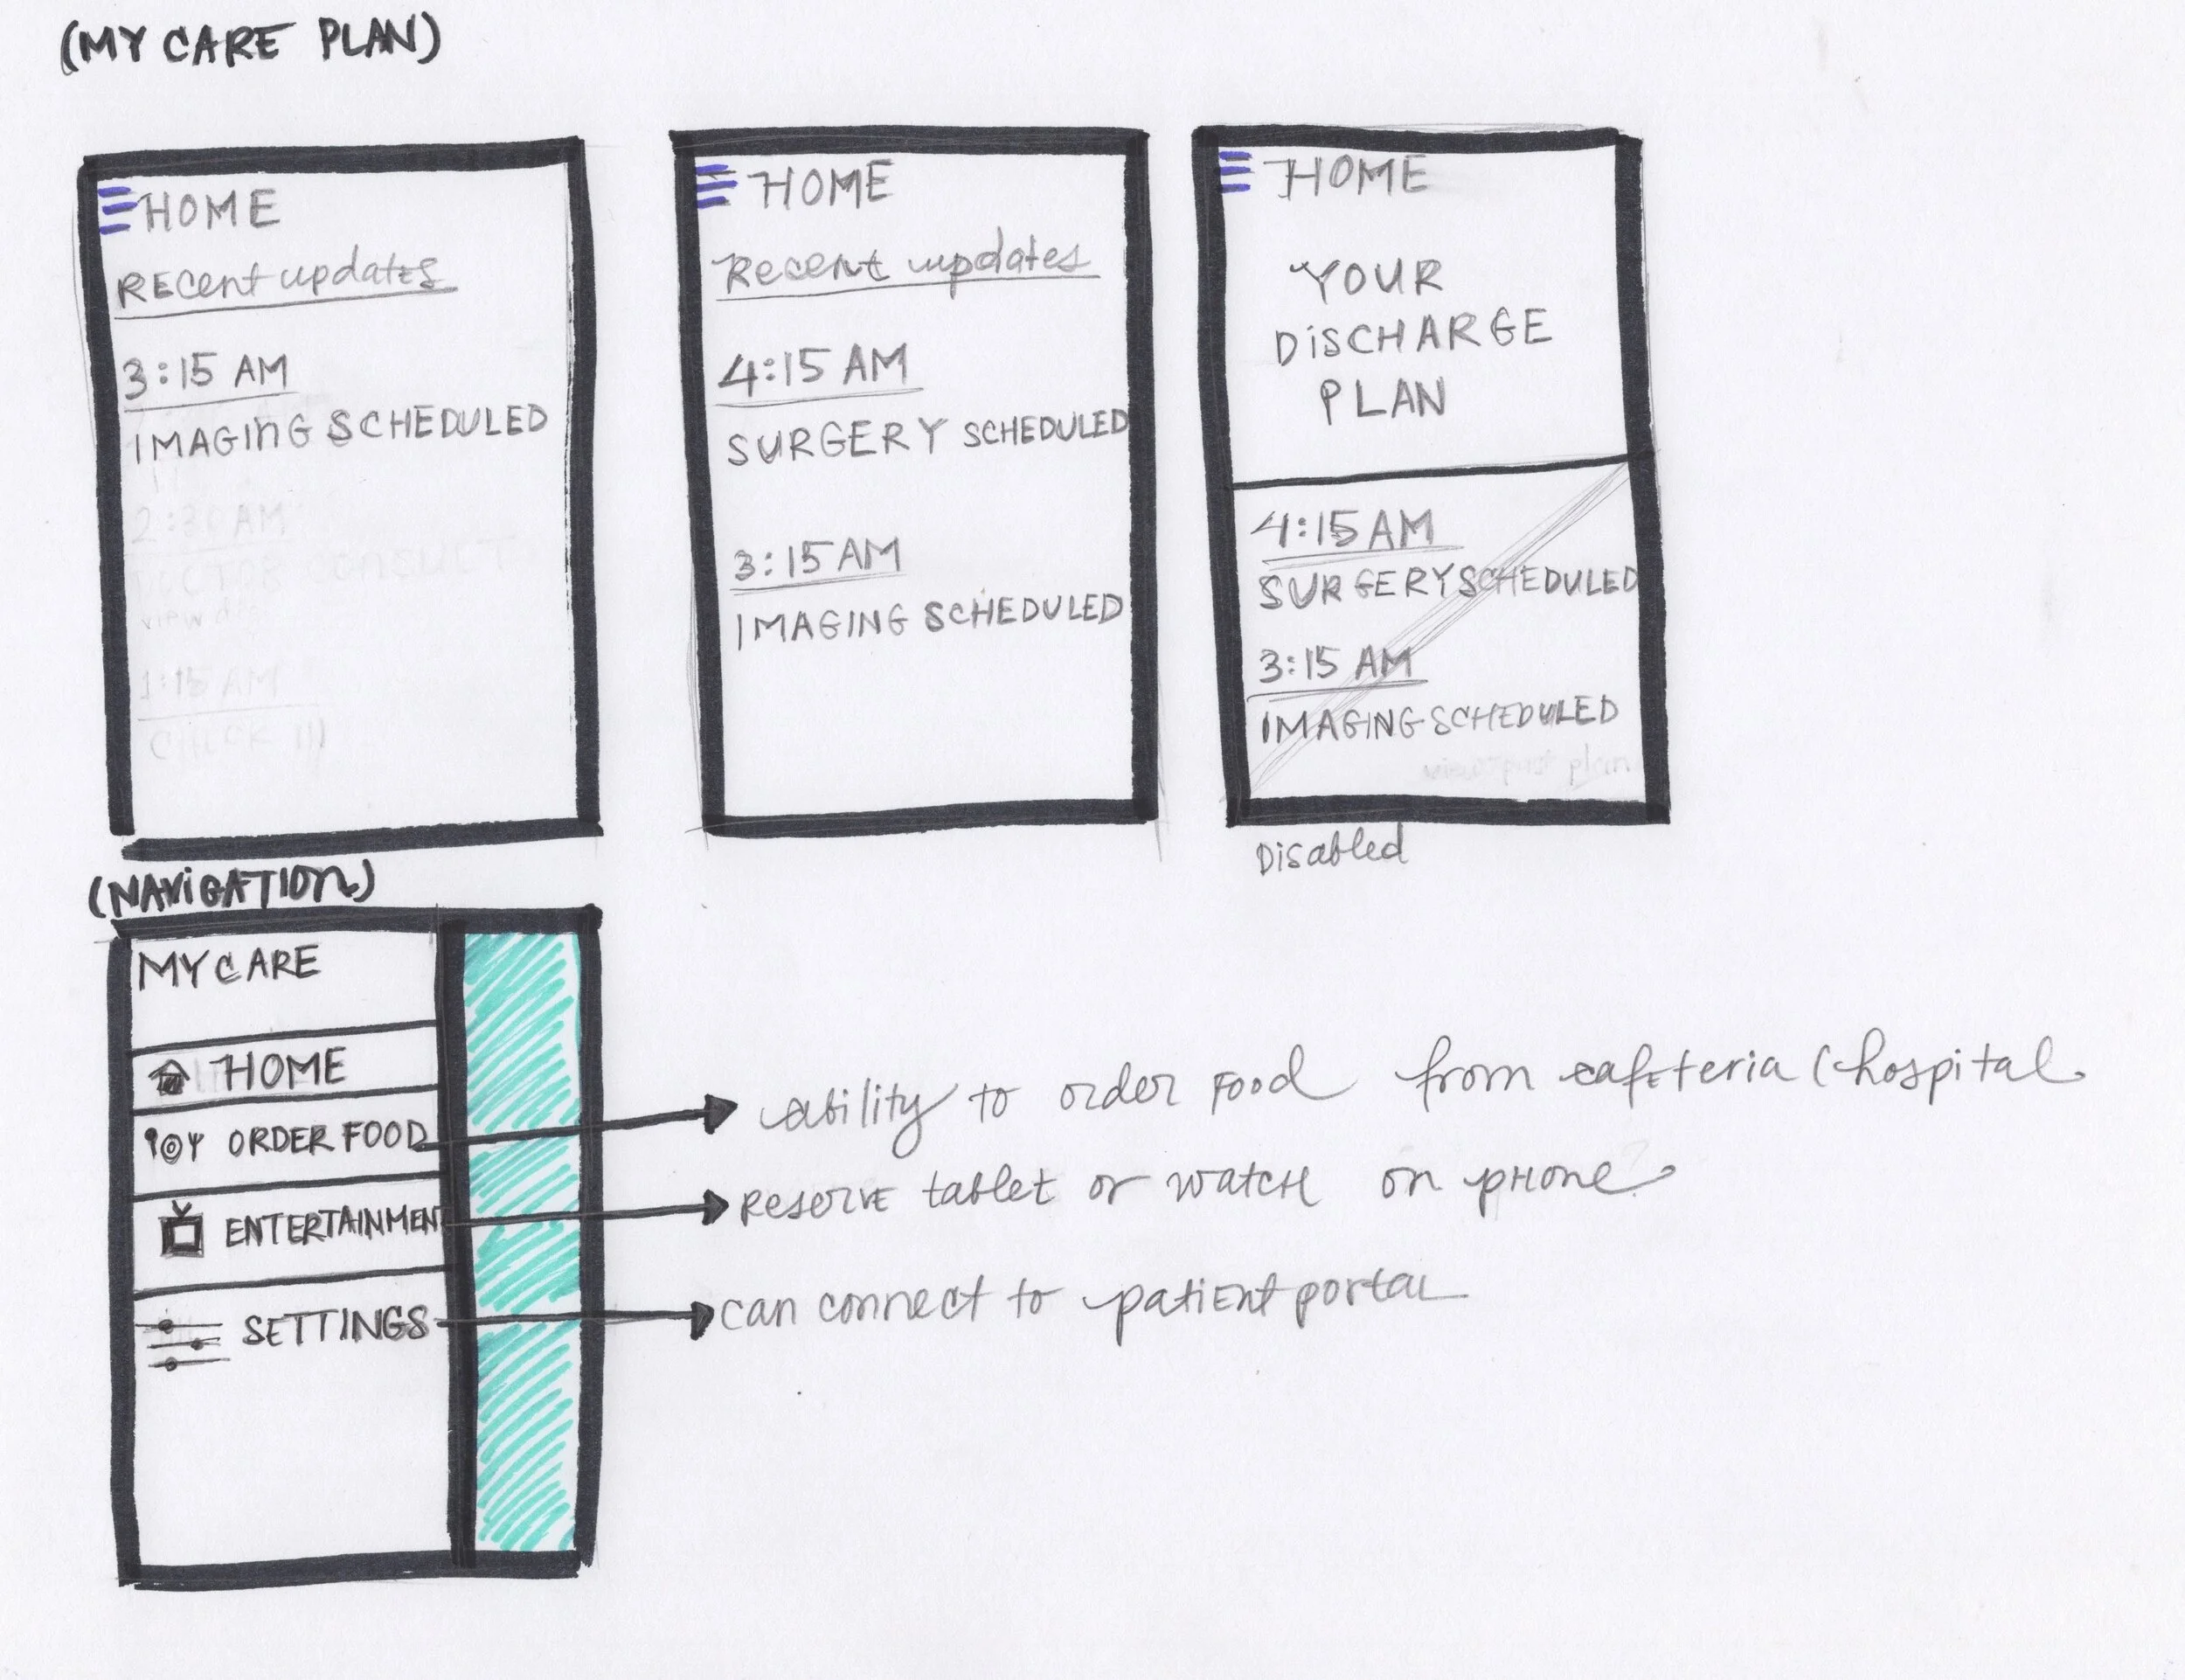 (MY CARE PLAN)
HOME
RECent updatES
3:15 AM
IMAGInG SCHEDULED
2:30 AM
DOCTOR CONSULT
view
1:15 AM
CHECK IN
HOME
Recent updates
4:15 AM
SURGERY SCHEDULED
3:15 AM
IMAGING SCHEDULED
HOME
YOUR
DiSCHARGE
PLAN
4:15 AM
SURGERY SCHEDULED
3:15 AM
IMAGING SCHEDULED
view past plan
Disabled
(NAViGATION)
MY CARE
HOME
ORDER FOOD
ENTERTAINMENT
SETTINGS
ability to order FOOD from cafeteria (hospital
RESERVE tablet or watcH on pHone?
can connect to patiEnt portal